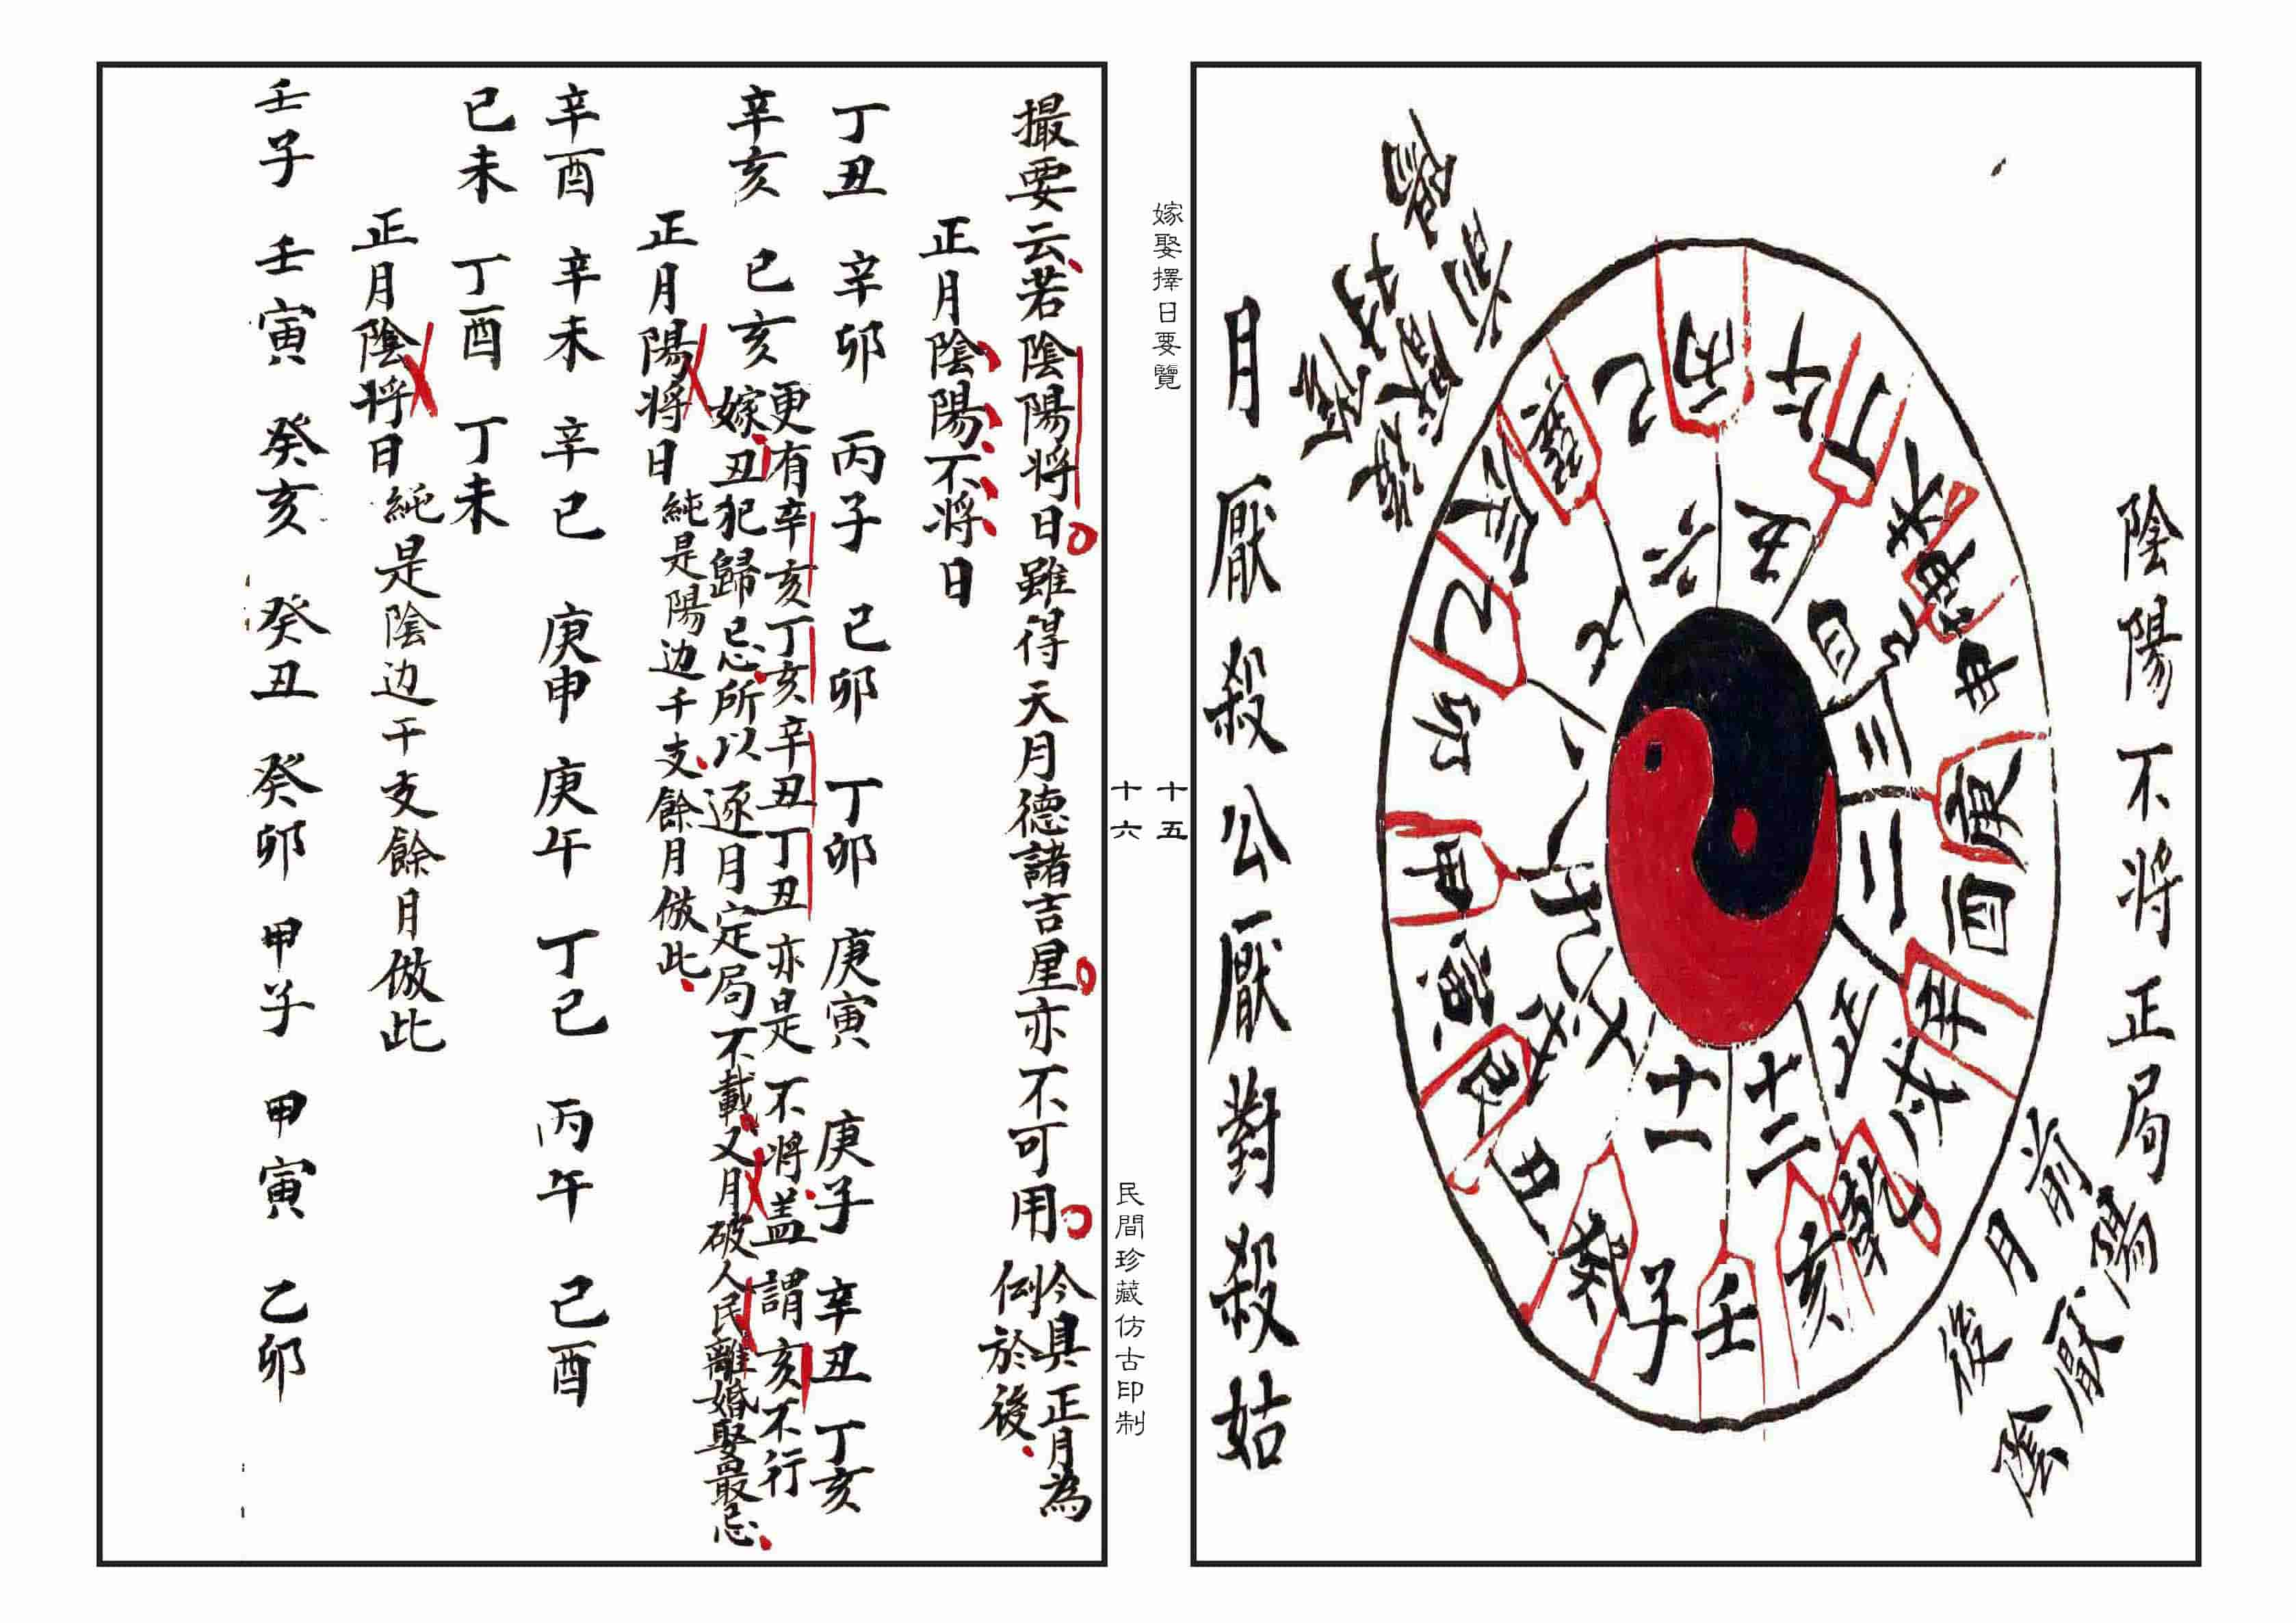 陰陽不将正局
前陽
月厭
後陰
丙 午 丁 未 坤 申 庚 酉 辛 戌 乾 亥 壬 子 癸 丑 艮 寅 甲 卯 乙 辰 巽 巳
五 四 三 二 正 十二 十一 十 九 八 七 六
月厭殺公厭對殺姑
嫁娶擇日要覽
十五
十六
民間珍藏仿古印制
撮要云若陰陽将日雖得天月德諸吉星亦不可用今具正月為
例於後
正月陰陽不将日
丁丑 辛卯 丙子 己卯 丁卯 庚寅 庚子 辛丑 丁亥
辛亥 己亥 更有辛亥丁亥辛丑丁丑亦是不将盖謂亥不行
嫁丑犯歸忌所以逐月定局不載又月破人民離婚娶最忌
正月陽将日純是陽边干支餘月倣此
辛酉 辛未 辛巳 庚申 庚午 丁巳 丙午 己酉
己未 丁酉 丁未
正月陰将日純是陰边干支餘月倣此
壬子 壬寅 癸亥 癸丑 癸卯 甲子 甲寅 乙卯